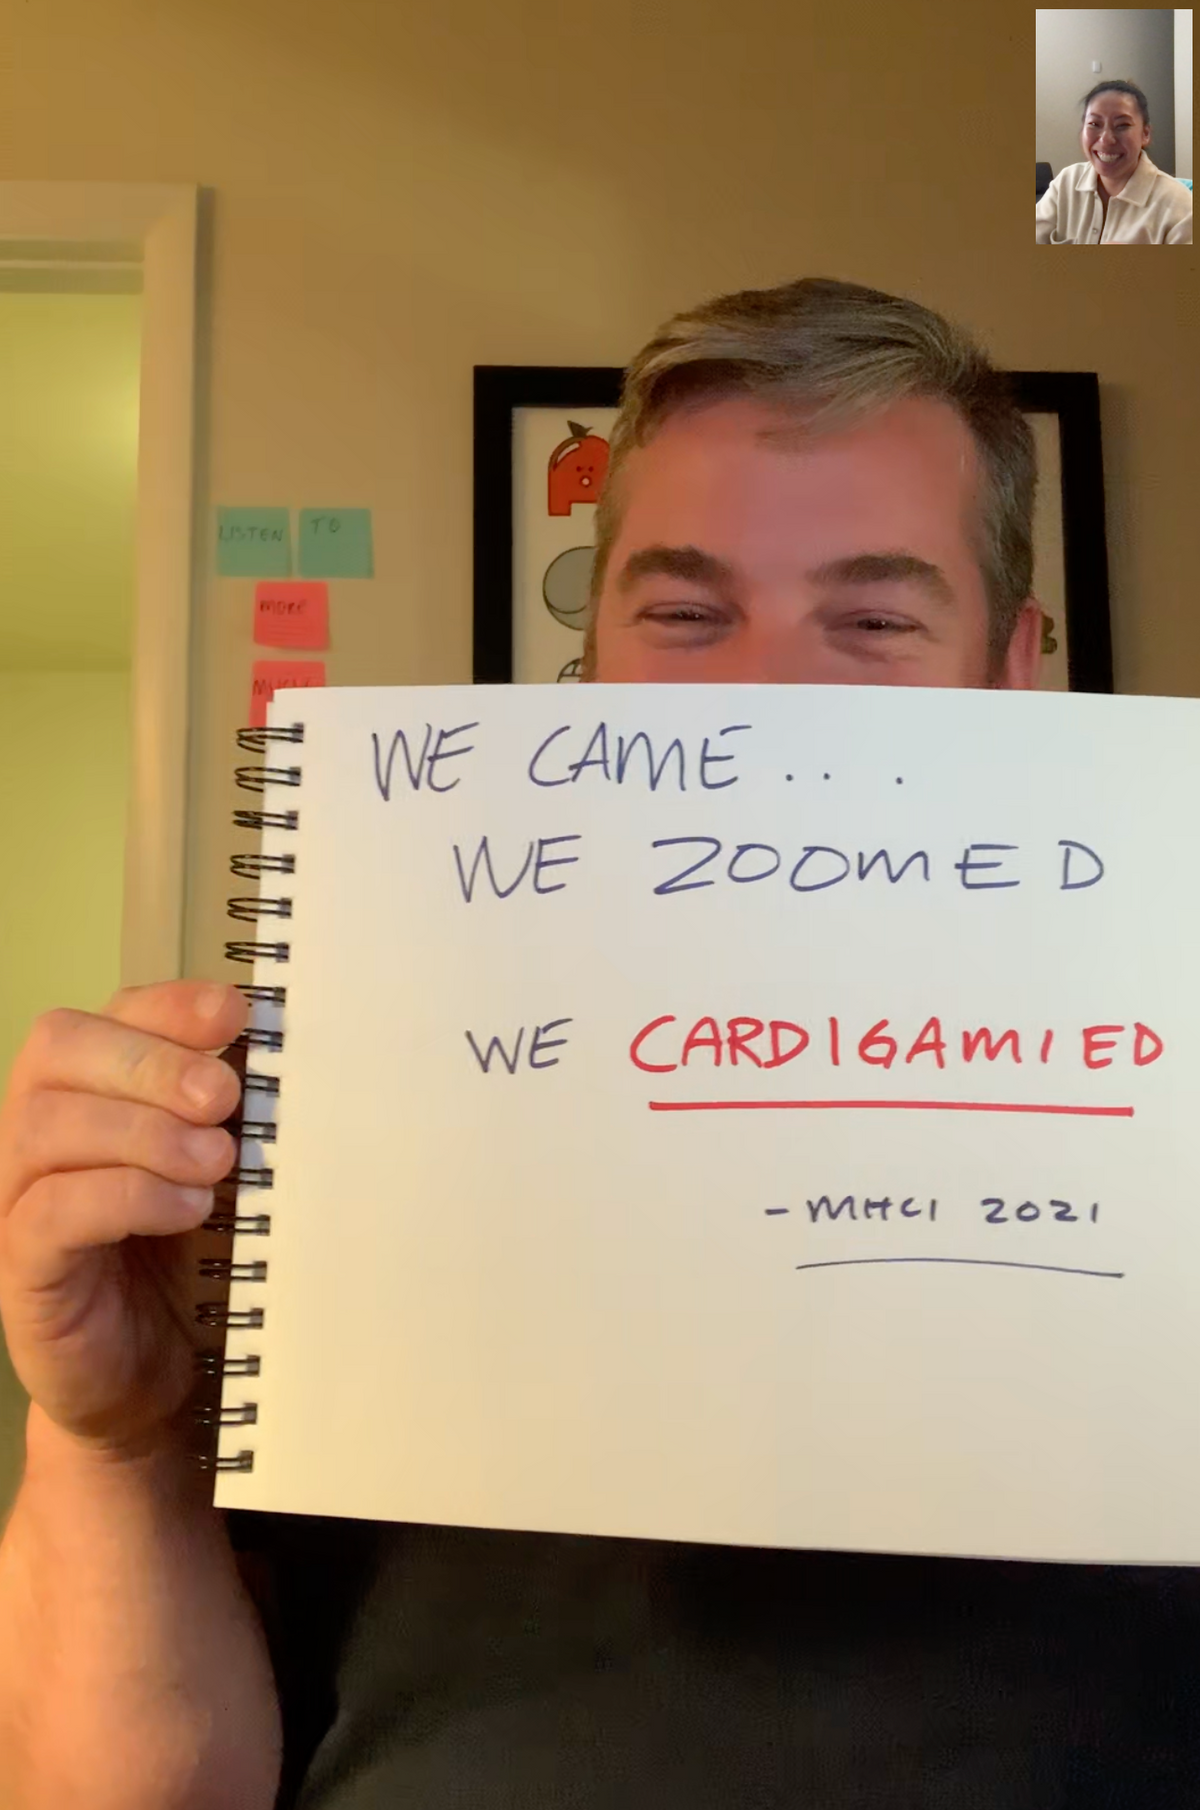 LISTEN TO
MORE
MUSIC
WE CAME . . .
WE ZOOMED
WE CARDIGAMIED
- MHCI 2021